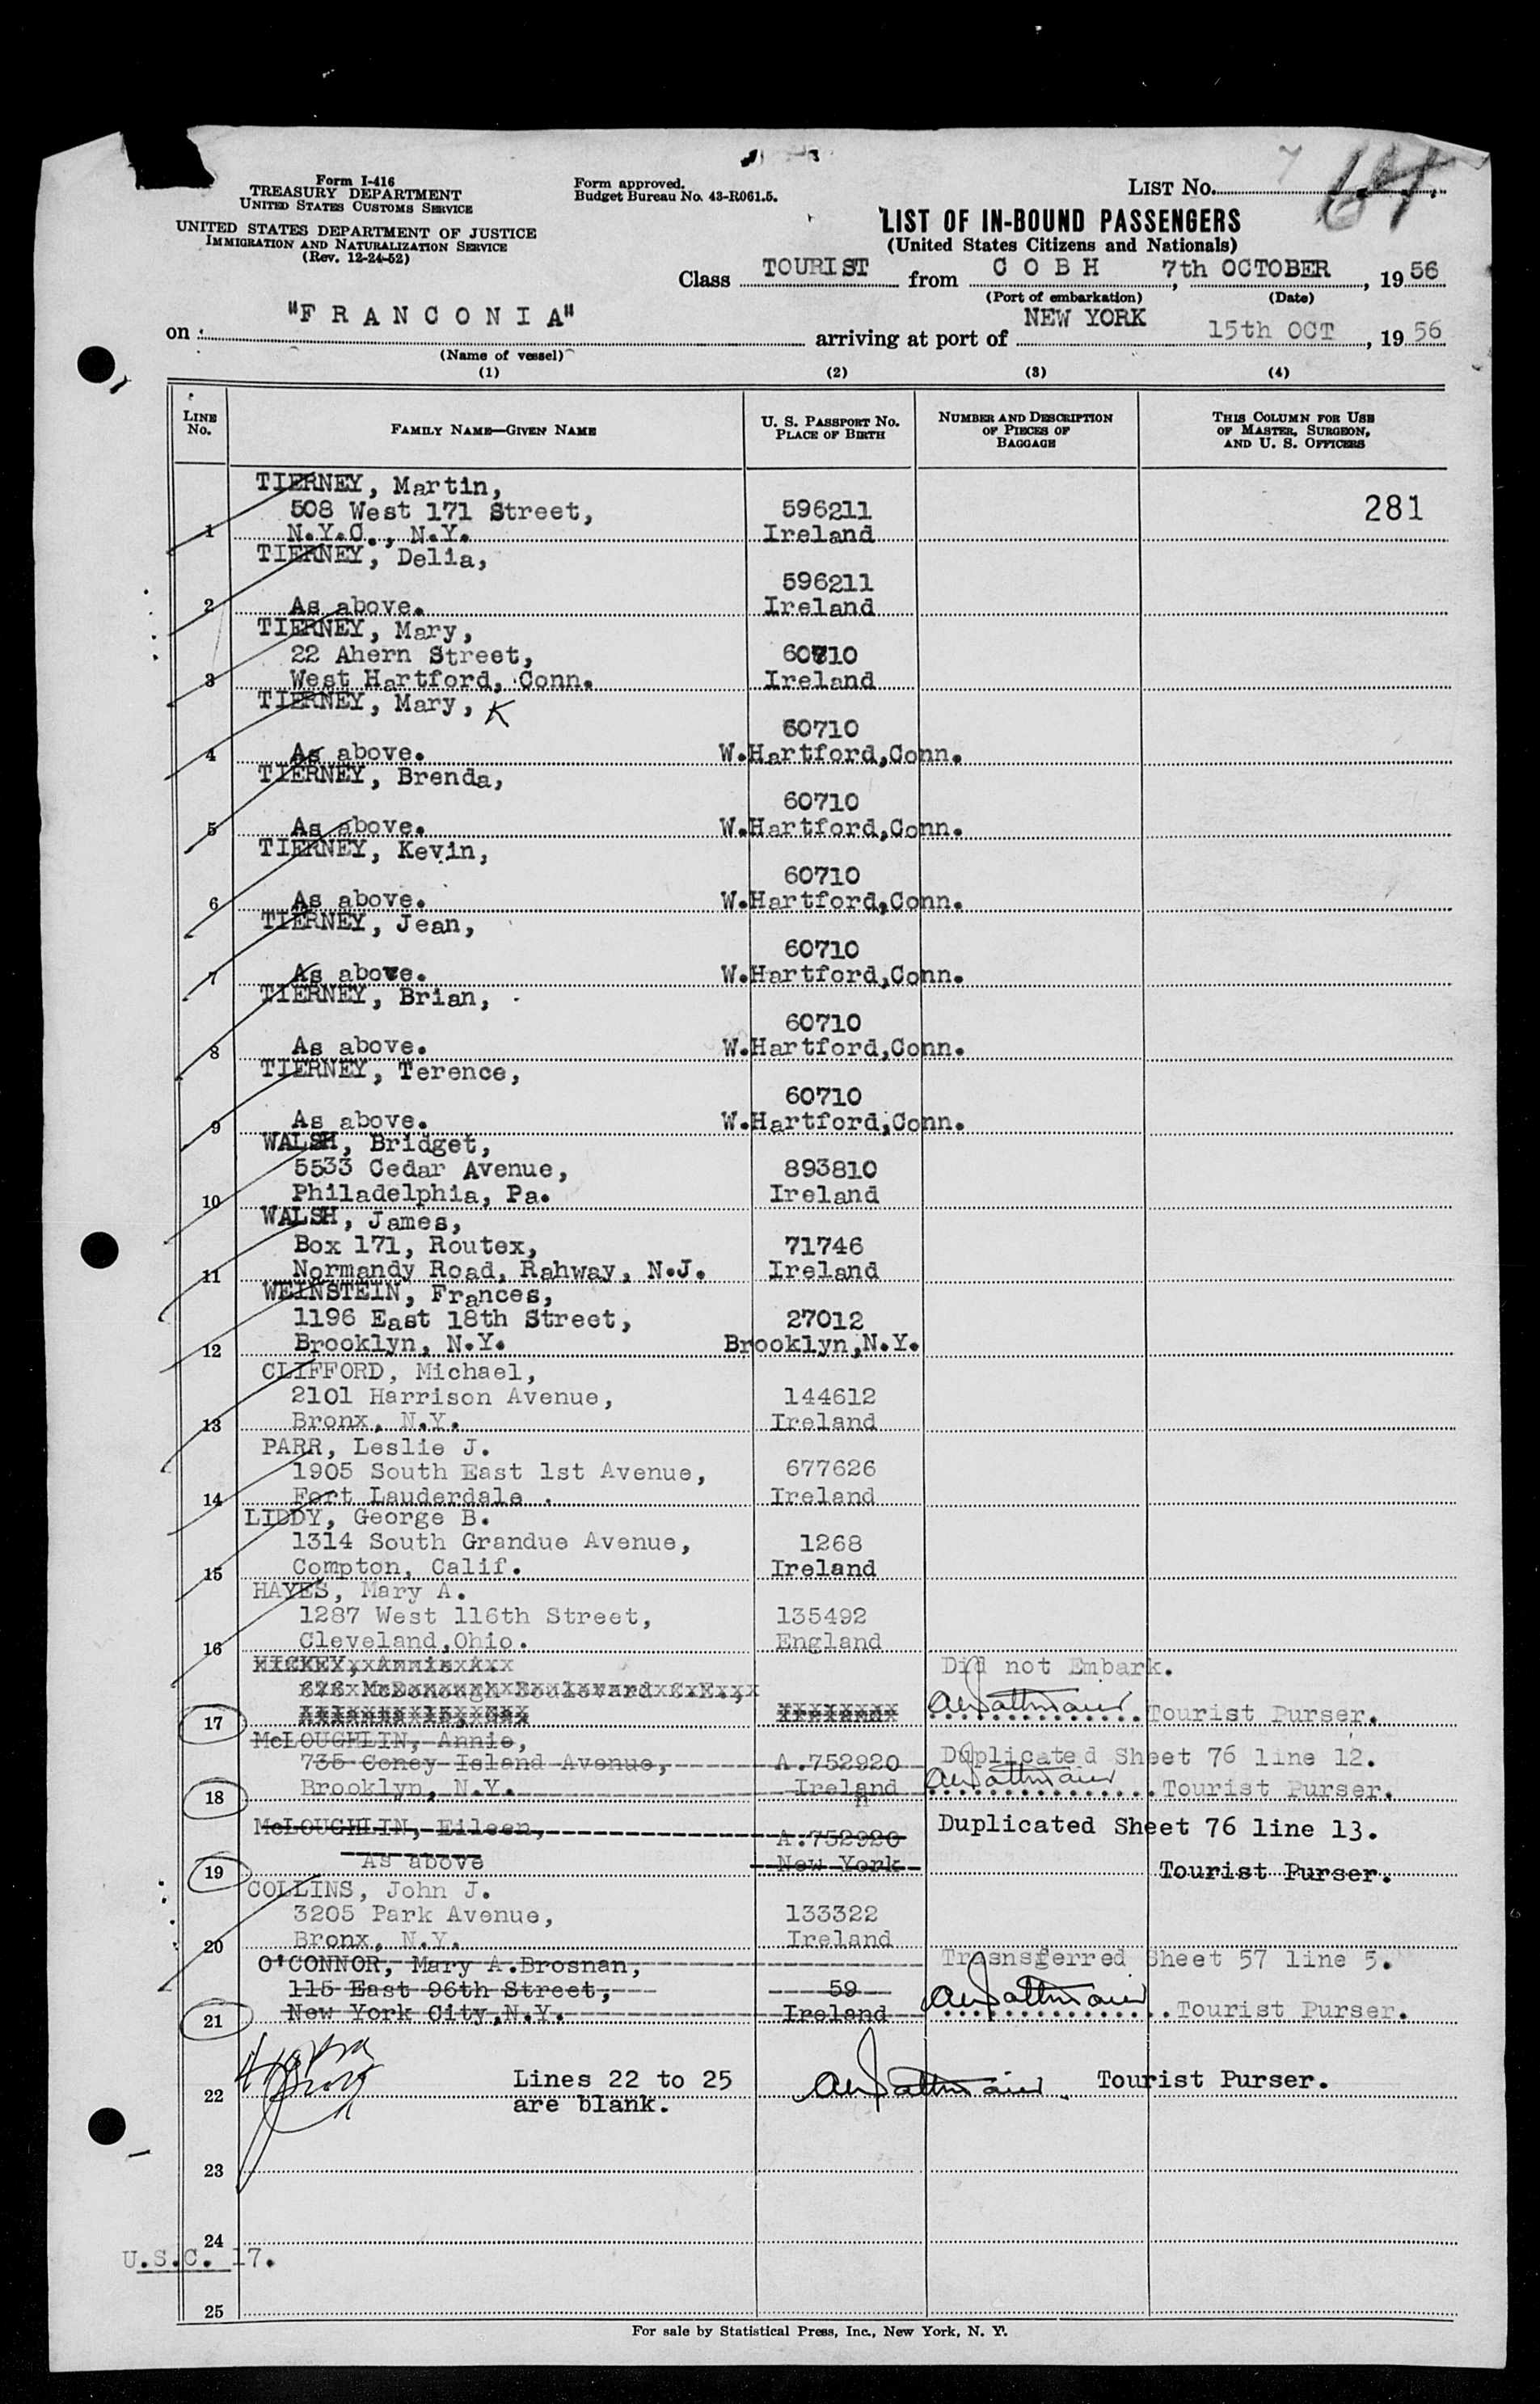 Form I-416
TREASURY DEPARTMENT
UNITED STATES CUSTOMS SERVICE
UNITED STATES DEPARTMENT OF JUSTICE
IMMIGRATION AND NATURALIZATION SERVICE
(Rev. 12-24-52)
Form approved.
Budget Bureau No. 43-R061.5.
LIST No.
LIST OF IN-BOUND PASSENGERS
(United States Citizens and Nationals)
Class TOURIST from C O B H, 7th OCTOBER, 1956
(Port of embarkation) (Date)
on "F R A N C O N I A" arriving at port of NEW YORK 15th OCT, 1956
(Name of vessel)
(1) (2) (3) (4)
LINE No. FAMILY NAME—GIVEN NAME U. S. PASSPORT No. PLACE OF BIRTH NUMBER AND DESCRIPTION OF PIECES OF BAGGAGE THIS COLUMN FOR USE OF MASTER, SURGEON, AND U. S. OFFICERS
TIERNEY, Martin,
508 West 171 Street, 596211 281
1 N.Y.C., N.Y. Ireland
TIERNEY, Delia,
596211
2 As above. Ireland
TIERNEY, Mary,
22 Ahern Street, 60710
3 West Hartford, Conn. Ireland
TIERNEY, Mary, K
60710
4 As above. W.Hartford,Conn.
TIERNEY, Brenda,
60710
5 As above. W.Hartford,Conn.
TIERNEY, Kevin,
60710
6 As above. W.Hartford,Conn.
TIERNEY, Jean,
60710
7 As above. W.Hartford,Conn.
TIERNEY, Brian,
60710
8 As above. W.Hartford,Conn.
TIERNEY, Terence,
60710
9 As above. W.Hartford,Conn.
WALSH, Bridget,
5533 Cedar Avenue, 893810
10 Philadelphia, Pa. Ireland
WALSH, James,
Box 171, Routex, 71746
11 Normandy Road, Rahway, N.J. Ireland
WEINSTEIN, Frances,
1196 East 18th Street, 27012
12 Brooklyn, N.Y. Brooklyn,N.Y.
CLIFFORD, Michael,
2101 Harrison Avenue, 144612
13 Bronx, N.Y. Ireland
PARR, Leslie J.
1905 South East 1st Avenue, 677626
14 Fort Lauderdale . Ireland
LIDDY, George B.
1314 South Grandue Avenue, 1268
15 Compton, Calif. Ireland
HAYES, Mary A.
1287 West 116th Street, 135492
16 Cleveland,Ohio. England
HICKEY, Annie A. Did not Embark.
McDonough Boulevard S.E.,
17 Tourist Purser.
McLOUGHLIN, Annie,
735 Coney Island Avenue, A.752920 Duplicated Sheet 76 line 12.
18 Brooklyn, N.Y. Ireland Tourist Purser.
McLOUGHLIN, Eileen, A.752920 Duplicated Sheet 76 line 13.
19 As above New York Tourist Purser.
COLLINS, John J.
3205 Park Avenue, 133322
20 Bronx, N.Y. Ireland
O'CONNOR, Mary A.Brosnan, Trasnsferred Sheet 57 line 5.
115 East 96th Street, 59
21 New York City,N.Y. Ireland Tourist Purser.
Lines 22 to 25 Tourist Purser.
22 are blank.
23
24
U.S.C. 17.
25
For sale by Statistical Press, Inc., New York, N. Y.